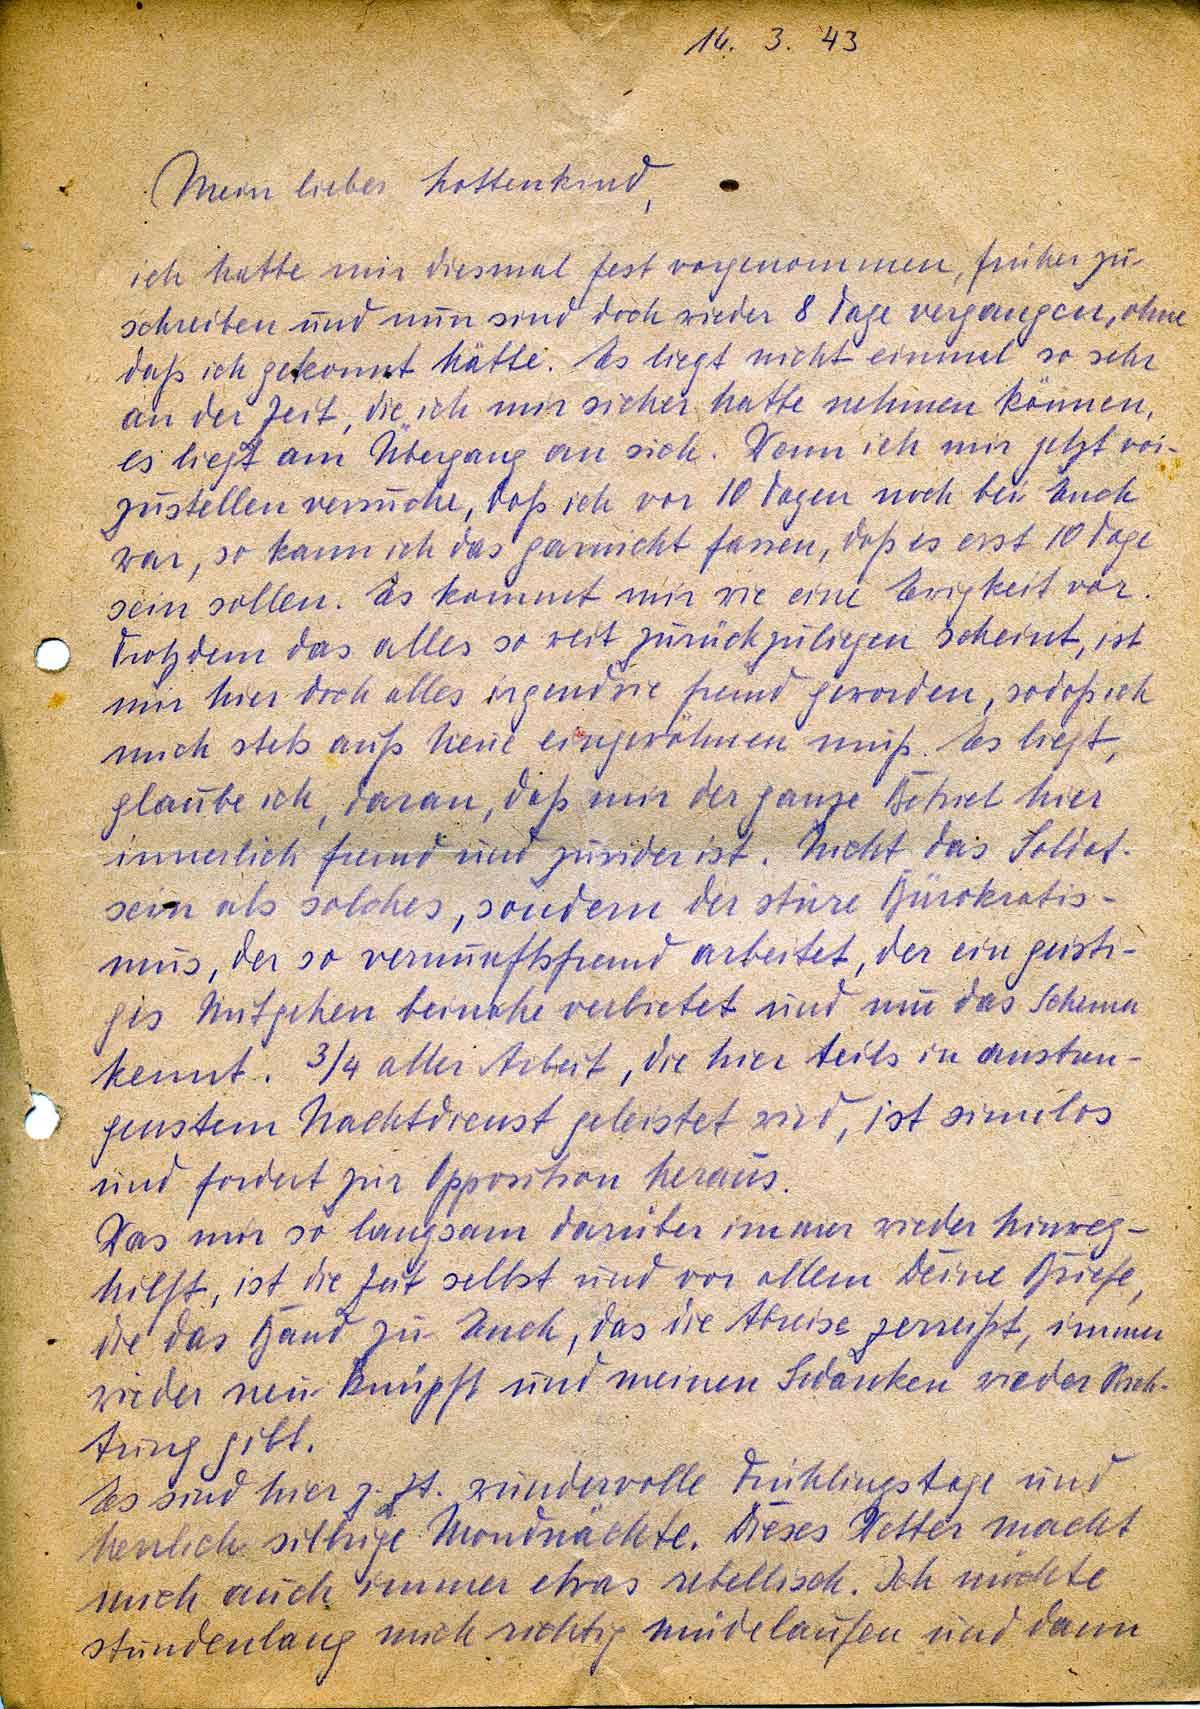 16. 3. 43
Mein lieber Hottenkind,
ich hatte mir diesmal fest vorgenommen, früher zu
schreiben und nun sind doch wieder 8 Tage vergangen, ohne
daß ich gekonnt hätte. Es liegt nicht einmal so sehr
an der Zeit, die ich mir sicher hatte nehmen können,
es liegt am Übergang an sich. Wenn ich mir jetzt vor-
zustellen versuche, daß ich vor 10 Tagen noch bei Euch
war, so kann ich das garnicht fassen, daß es erst 10 Tage
sein sollen. Es kommt mir wie eine Ewigkeit vor.
Trotzdem das alles so weit zurückzuliegen scheint, ist
mir hier doch alles irgendwie fremd geworden, sodaß ich
mich stets aufs Neue eingewöhnen muß. Es liegt,
glaube ich, daran, daß mir der ganze Betrieb hier
innerlich fremd und zuwider ist. Nicht das Soldat-
sein als solches, sondern der sture Bürokratis-
mus, der so vernunftsfremd arbeitet, der ein geisti-
ges Mitgehen beinahe verbietet und nur das Schema
kennt. 3/4 aller Arbeit, die hier teils in anstren-
genstem Nachtdienst geleistet wird, ist sinnlos
und fordert zur Opposition heraus.
Was mir so langsam darüber immer wieder hinweg-
hilft, ist die Zeit selbst und vor allem Deine Briefe,
die das Band zu Euch, das die Abreise zerreißt, immer
wieder neu knüpft und meinen Gedanken wieder Rich-
tung gibt.
Es sind hier z. Zt. wundervolle Frühlingstage und
herrlich silbrige Mondnächte. Dieses Wetter macht
mich auch immer etwas rebellisch. Ich möchte
stundenlang mich richtig müdelaufen und dann